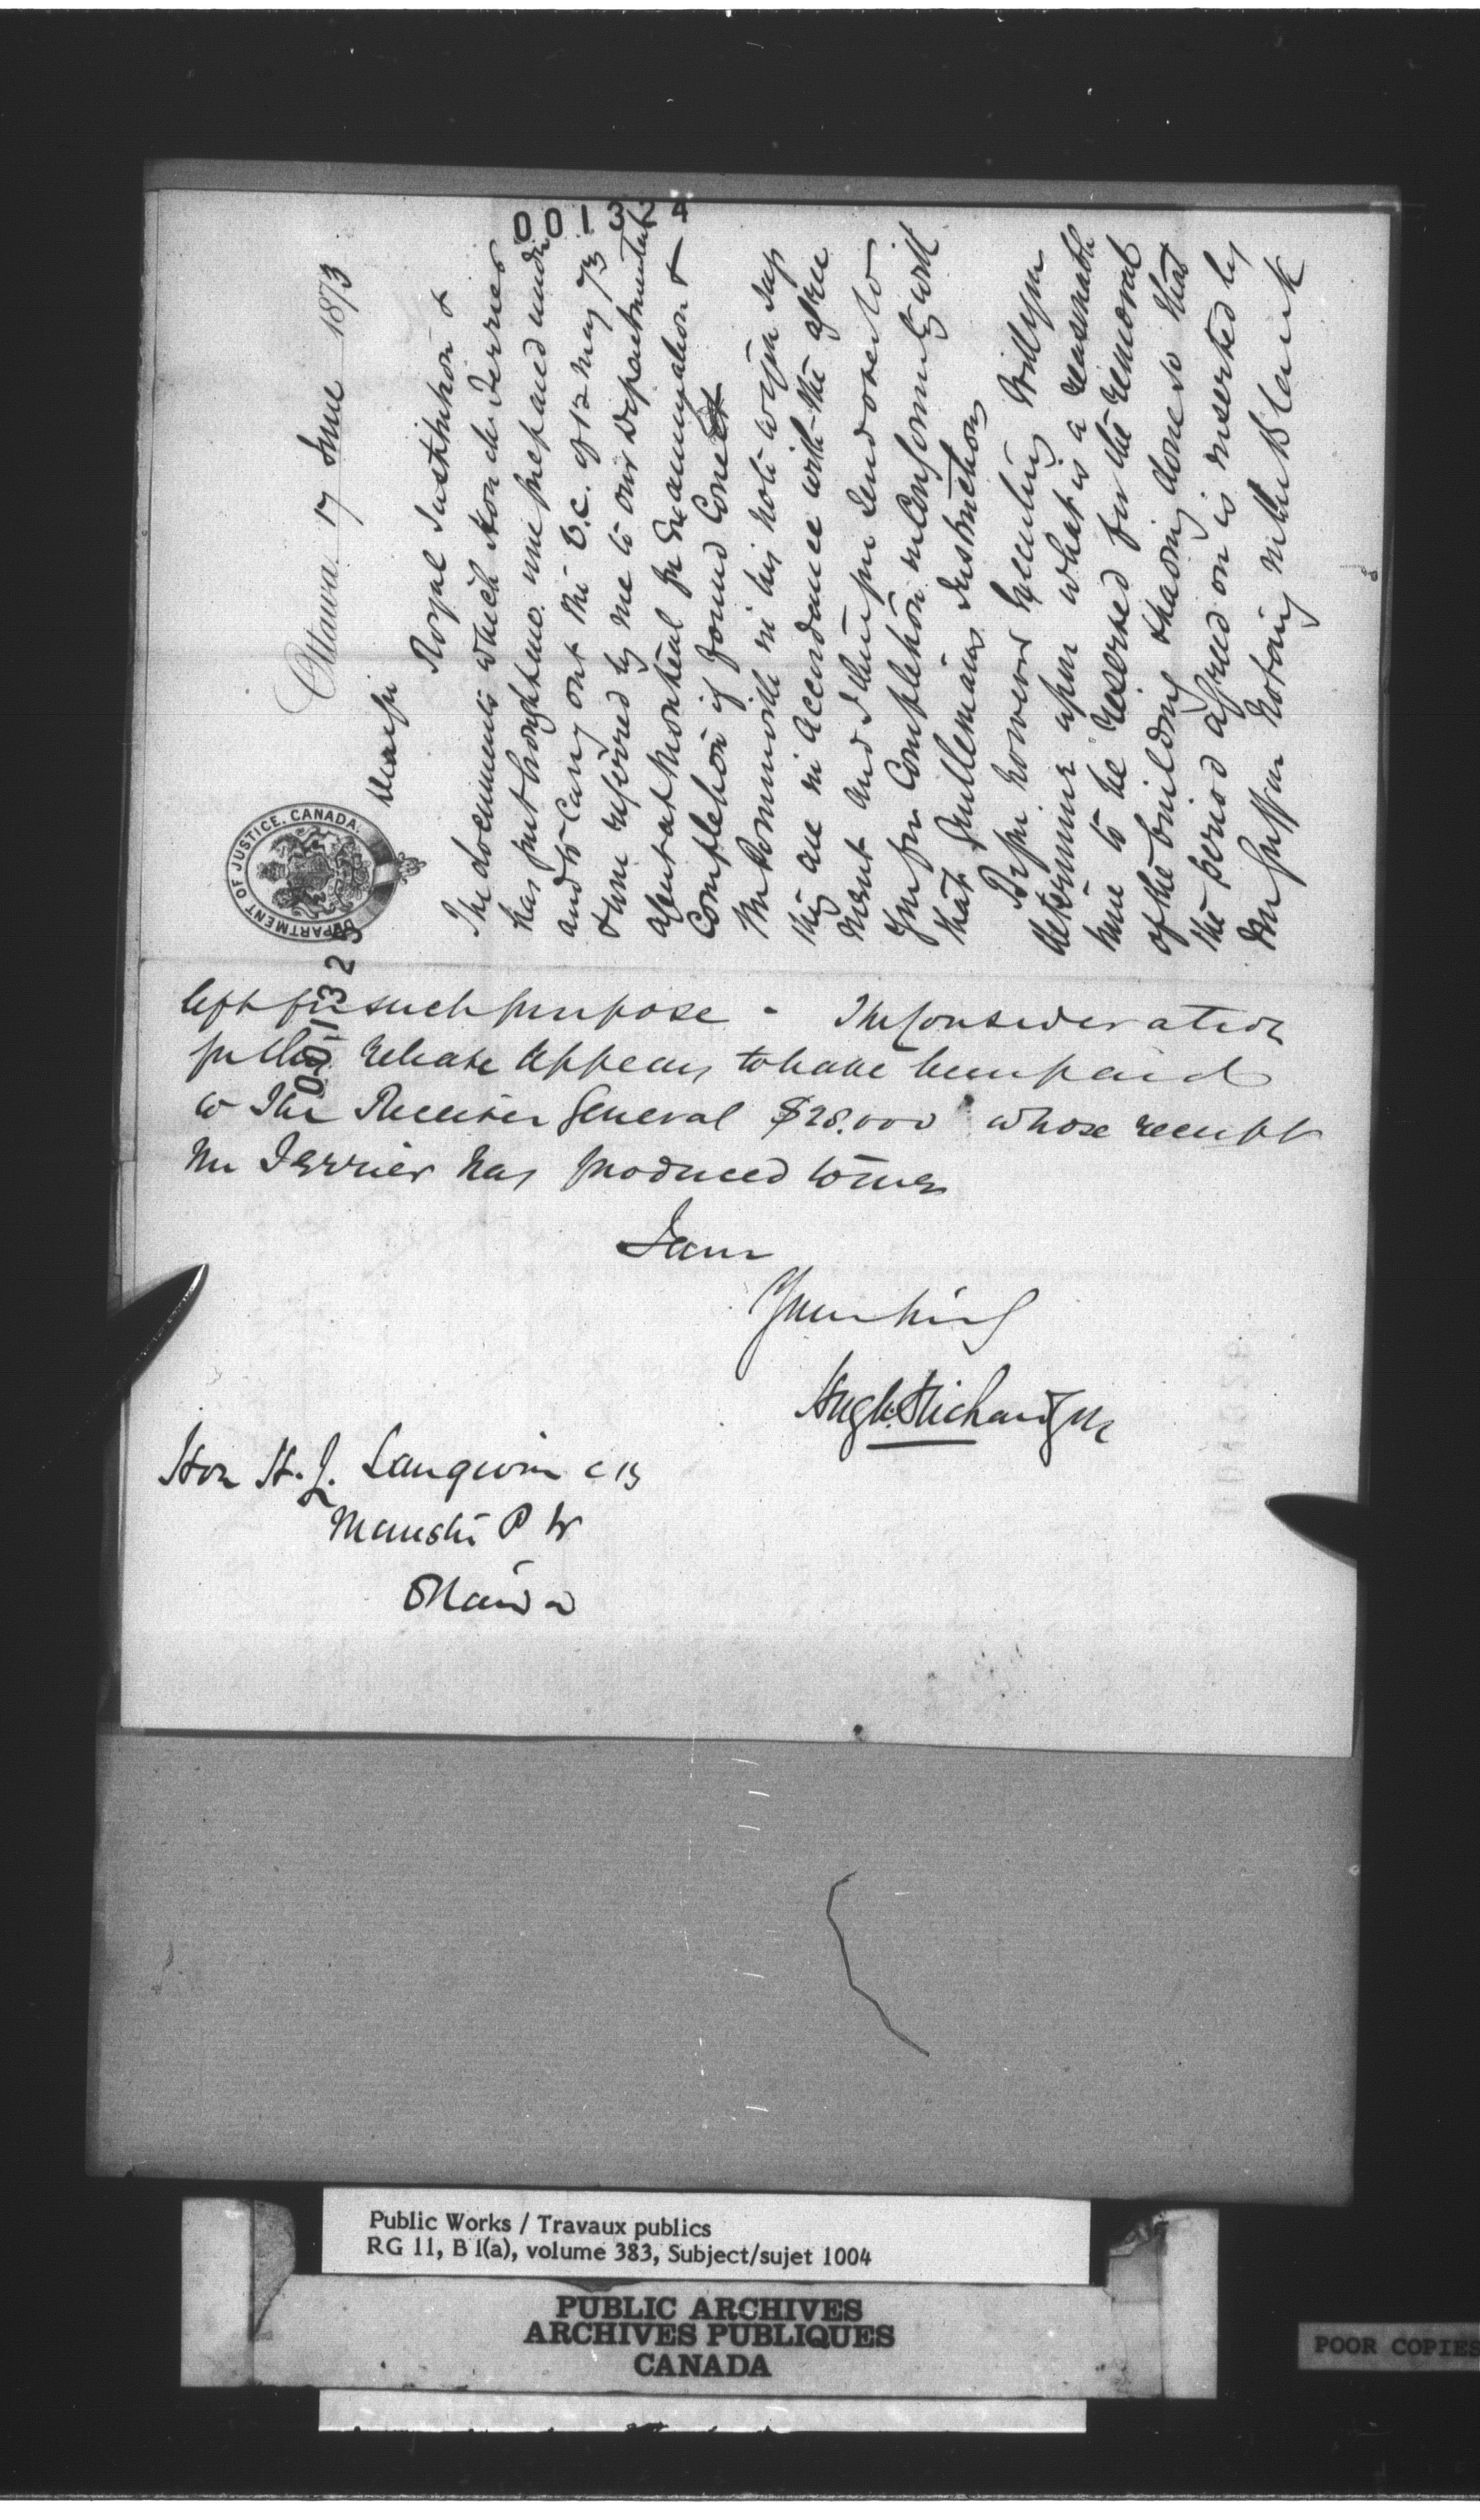 001324
DEPARTMENT OF JUSTICE. CANADA.
Ottawa 17 June 1873
Royal Institution &
The documents which Hon Mr Ferrier
has just brought me were prepared under
and to carry out the O.C. of 12 May 73
& were referred by me to our Departmental
agent at Montreal for Examination &
Completion if found Correct
Mr Dornworth in his note to you says
they are in accordance with the agree
ment and I therefore endorse to
you for Completion in Conformity with
that Gentlemans Instructions
Before however Executing Will you
determine upon what is a reasonable
time to be reserved for the removal
of the building & having done so that
the period agreed on is inserted by
Dm Griffin Notary in the Blank
left for such purpose - The Consideration
for the release appears to have been paid
to The Receiver General $28.000 whose receipt
Mr Ferrier has produced to me
I am
Yours truly
Hugh Richardson
Hon H. L. Langevin C B
Minister P W
Ottawa
Public Works / Travaux publics
RG 11, B 1(a), volume 383, Subject/sujet 1004
PUBLIC ARCHIVES
ARCHIVES PUBLIQUES
CANADA
POOR COPIES